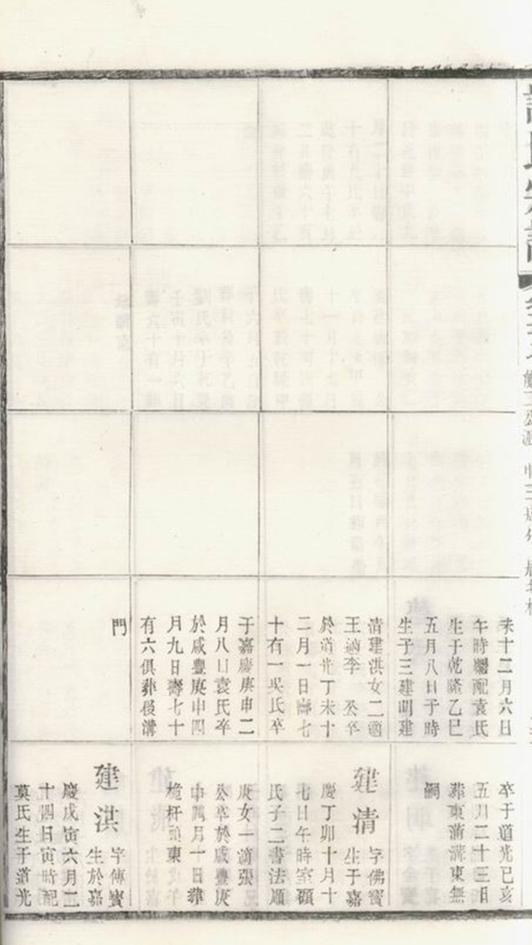 未十二月六日
午時繼配袁氏
生于乾隆乙巳
五月八日子時
生子三建明建
清建洪女二適
王適李 公卒
於道光丁未十
二月一日壽七
十有一吳氏卒
于嘉慶庚申二
月八日袁氏卒
於咸豐庚申四
月九日壽七十
有六俱葬後溝
門
卒于道光己亥
五月二十三日
葬東蒲溝東無
嗣
建清 字佛寶
生于嘉
慶丁卯十月十
七日午時室顧
氏子二書法順
庚女一適張
公卒於咸豐庚
申四月一日葬
桅杆頭東
建洪 字傳寶
生於嘉
慶戊寅六月二
十四日寅時配
莫氏生于道光